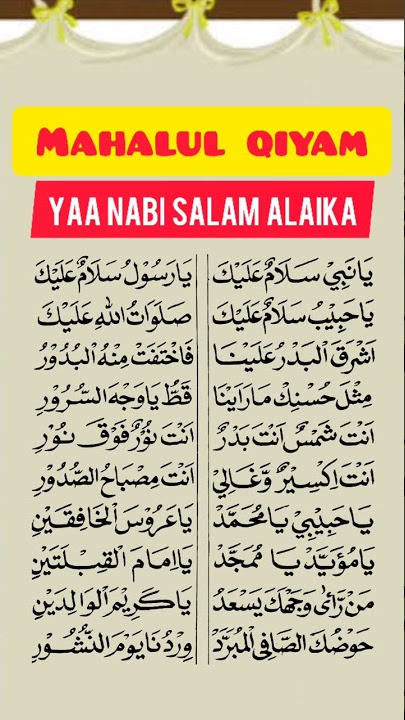 MAHALUL QIYAM
YAA NABI SALAM ALAIKA
يَا نَبِيْ سَلَامٌ عَلَيْكَ يَا رَسُوْلُ سَلَامٌ عَلَيْكَ
يَا حَبِيْبُ سَلَامٌ عَلَيْكَ صَلَوَاتُ اللهِ عَلَيْكَ
اَشْرَقَ الْبَدْرُ عَلَيْنَا فَاخْتَفَتْ مِنْهُ الْبُدُوْرُ
مِثْلَ حُسْنِكْ مَا رَاَيْنَا قَطُّ يَا وَجْهَ السُّرُوْرِ
اَنْتَ شَمْسٌ اَنْتَ بَدْرٌ اَنْتَ نُوْرٌ فَوْقَ نُوْرٍ
اَنْتَ اِكْسِيْرٌ وَّغَالِيْ اَنْتَ مِصْبَاحُ الصُّدُوْرِ
يَا حَبِيْبِيْ يَا مُحَمَّدْ يَا عَرُوْسَ الْخَافِقَيْنِ
يَا مُؤَيَّدْ يَا مُمَجَّدْ يَا اِمَامَ الْقِبْلَتَيْنِ
مَنْ رَّأٰى وَجْهَكَ يَسْعَدُ يَا كَرِيْمَ الْوَالِدَيْنِ
حَوْضُكَ الصَّافِى الْمُبَرَّدْ وِرْدُنَا يَوْمَ النُّشُوْرِ